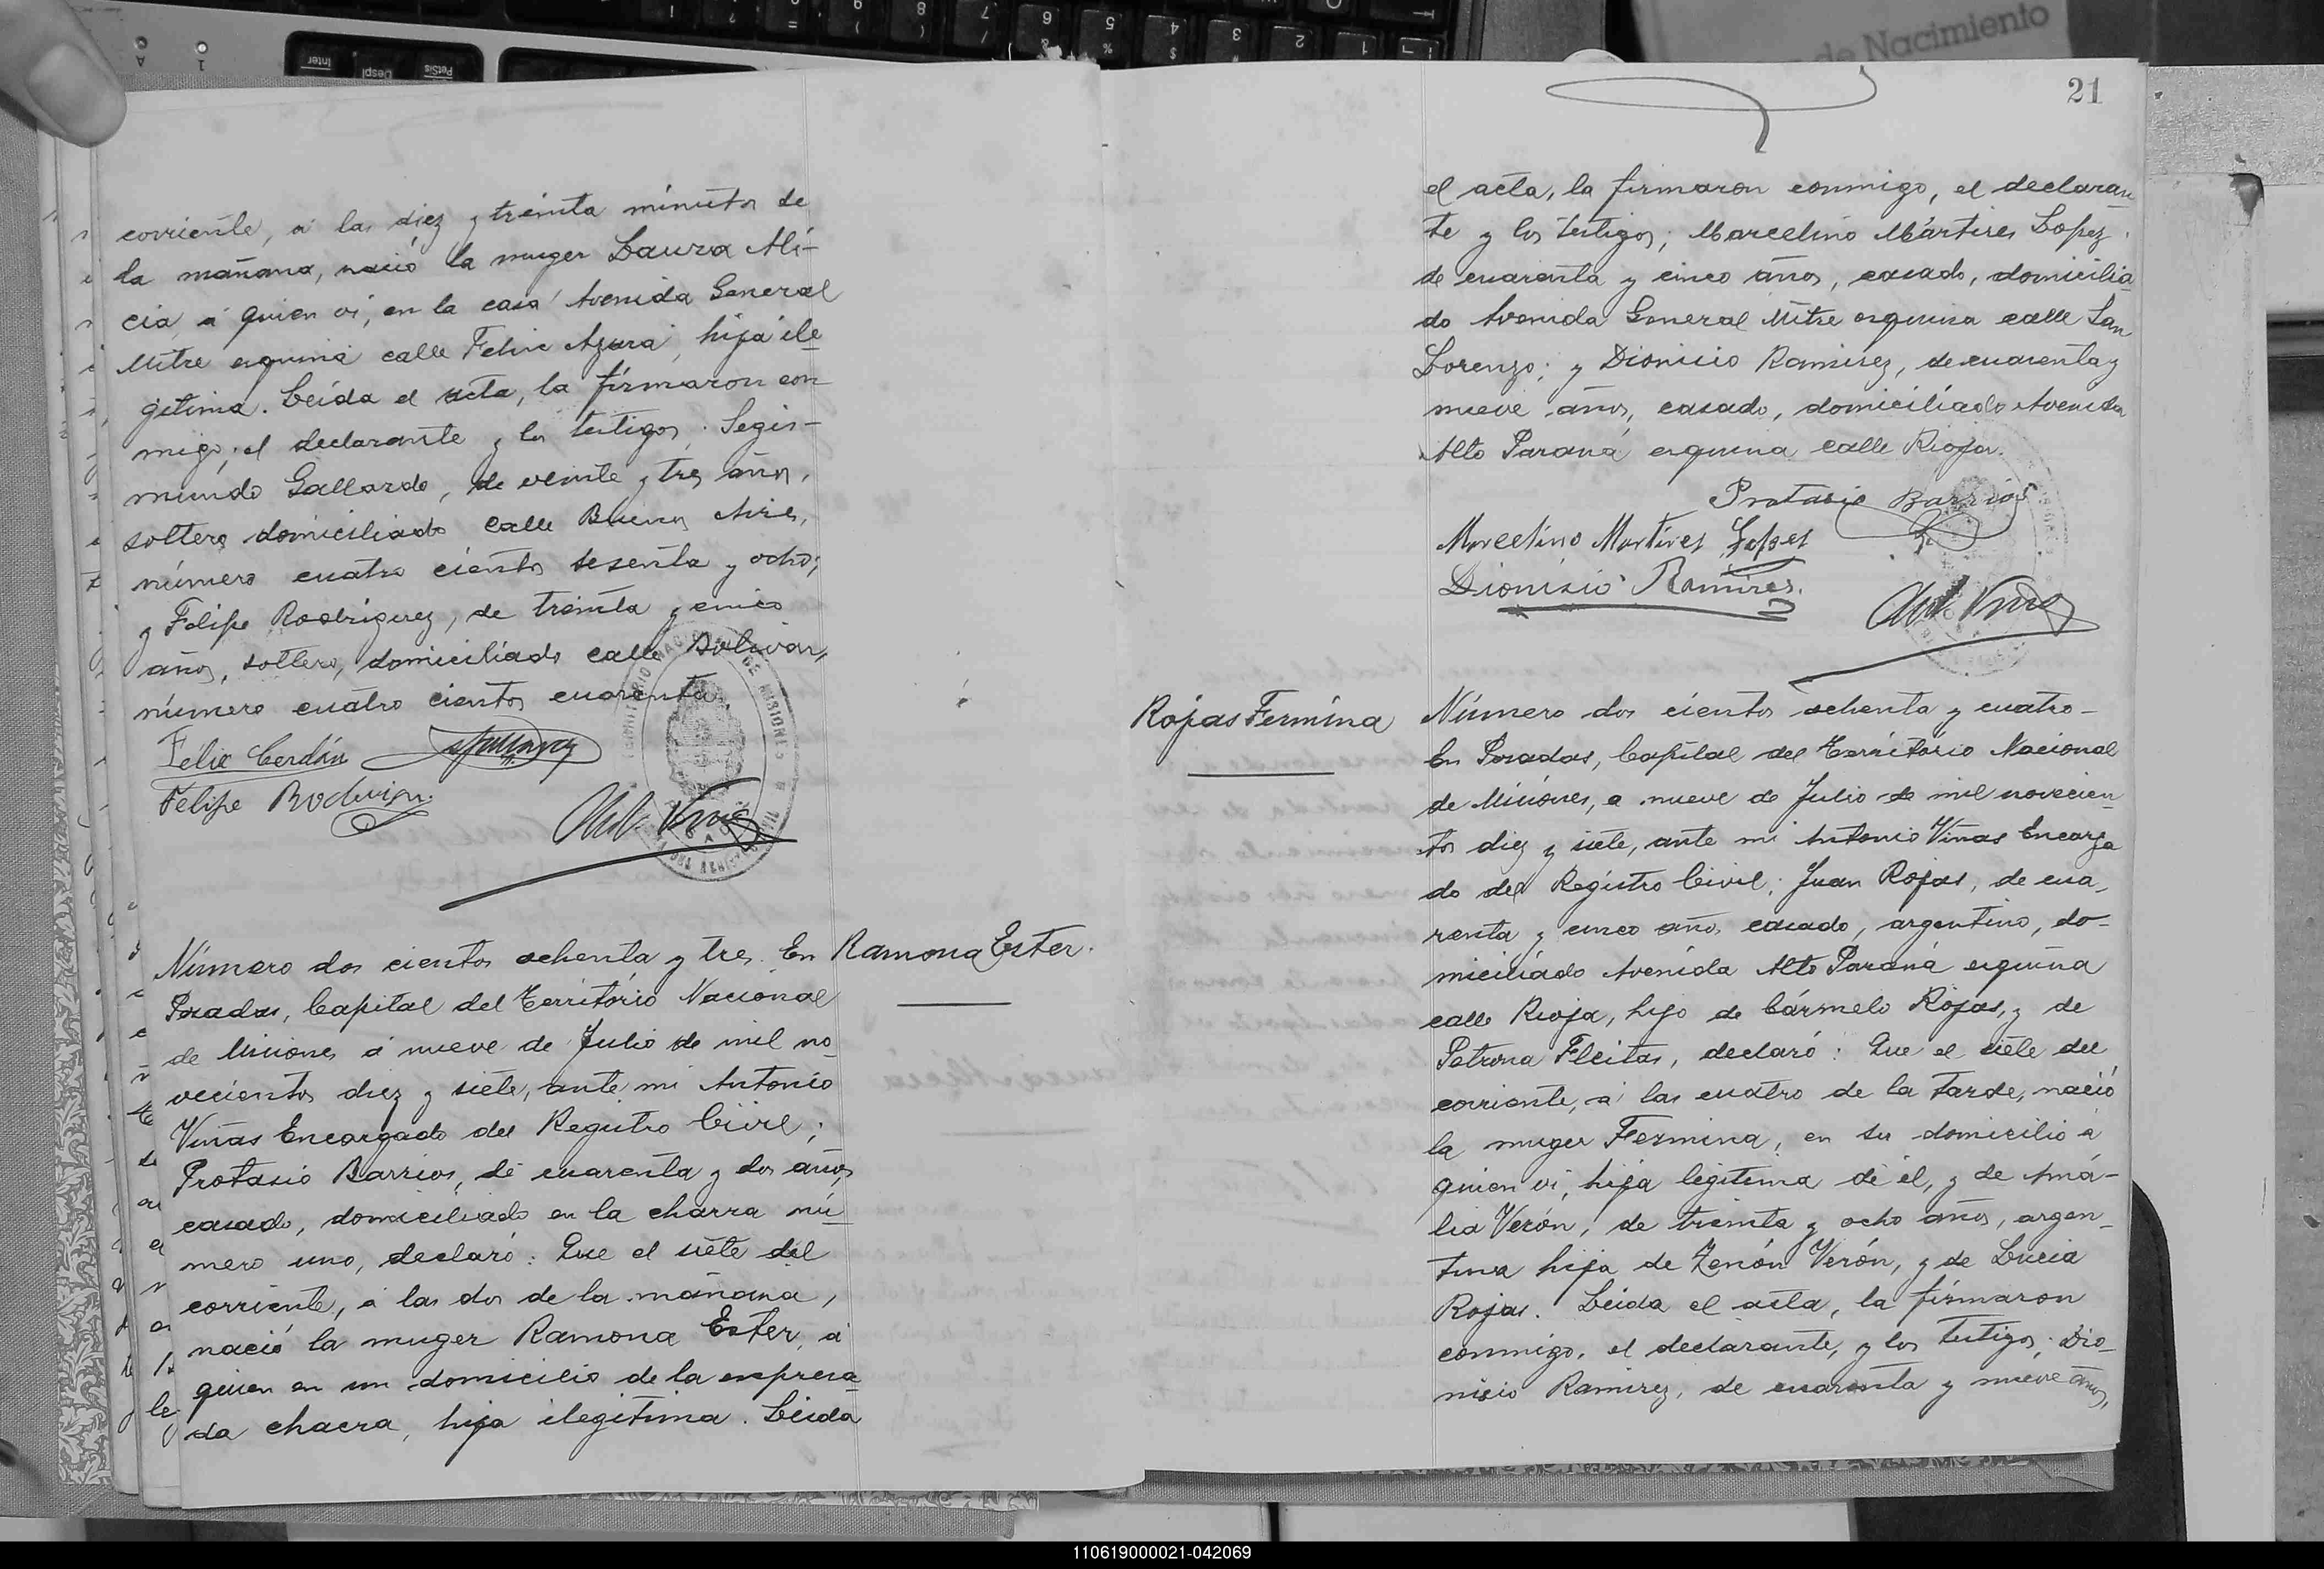 corriente, á las diez y treinta minutos de
la mañana, nació la muger Laura Ali-
cia, á quien vi, en la casa Avenida General
Mitre esquina calle Felix Azara, hija ile-
gitima. Leida el acta, la firmaron con-
migo, el declarante y los testigos, Segis-
mundo Gallardo, de veinte y tres años,
soltero domiciliado calle Buenos Aires,
número cuatro cientos sesenta y ocho;
y Felipe Rodriguez, de treinta y cinco
años, soltero, domiciliado calle Bolivar,
número cuatro cientos cuarenta.
Félix Cerdán
Felipe Rodrigz.
Número dos cientos ochenta y tres. En
Ramona Ester.
Posadas, Capital del Território Nacional
de Misiones á nueve de Julio de mil no-
vecientos diez y siete, ante mi Antonio
Viñas Encargado del Registro Civil;
Protasio Barrios, de cuarenta y dos años,
casado, domiciliado en la charra nú-
mero uno, declaró: Que el siete del
corriente, á las dos de la mañana,
nació la muger Ramona Ester, á
quien en un domicilio de la expresa-
da chacra, hija ilegitima. Leida
21
el acta, la firmaron conmigo, el declaran-
te y los testigos; Marcelino Mártires Lopez
de cuarenta y cinco años, casado, domicilia-
do Avenida General Mitre esquina calle San
Lorenzo; y Dionicio Ramirez, de cuarenta y
nueve años, casado, domiciliado Avenida
Alto Paraná esquina calle Rioja.
Protasio Barrios
Marcelino Martires Lopes
Dionisio Ramires.
Rojas Fermina
Número dos cientos ochenta y cuatro-
En Posadas, Capital del Território Nacional
de Misiones, a nueve de Julio de mil novecien-
tos diez y siete, ante mi Antonio Viñas Encarga
do del Registro Civil; Juan Rojas, de cua-
renta y cinco años casado, argentino, do-
miciliado Avenida Alto Paraná esquina
calle Rioja, hijo de Cármelo Rojas, y de
Petrona Fleitas, declaró: Que el siete del
corriente, á las cuatro de la tarde, nació
la muger Fermina, en su domicilio á
quien vi, hija legitima de él, y de Amá-
lia Verón, de treinta y ocho años, argen-
tina hija de Zenón Verón, y de Lucia
Rojas. Leida el acta, la firmaron
conmigo, el declarante, y los testigos, Dio-
nisio Ramirez, de cuarenta y nueve años,
de Nacimiento
110619000021-042069